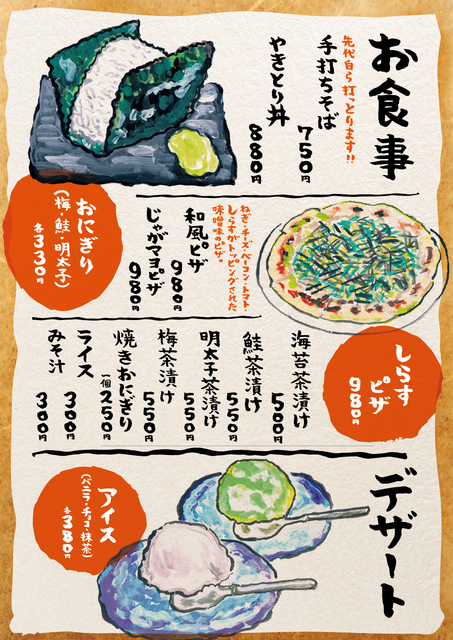 お食事
先代自ら打っとります!!
手打ちそば
750円
やきとり丼
880円
おにぎり
(梅・鮭・明太子)
各330円
ねぎ・チーズ・ベーコン・トマト・
しらすがトッピングされた
味噌味のピザ。
和風ピザ
980円
じゃがマヨピザ
980円
しらす
ピザ
980円
海苔茶漬け
500円
鮭茶漬け
550円
明太子茶漬け
550円
梅茶漬け
550円
焼きおにぎり
一個250円
ライス
300円
みそ汁
300円
デザート
アイス
(バニラ・チョコ・抹茶)
各380円